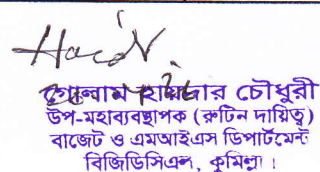 গোলাম হায়দার চৌধুরী
উপ-মহাব্যবস্থাপক (রুটিন দায়িত্ব)
বাজেট ও এমআইএস ডিপার্টমেন্ট
বিজিডিসিএল, কুমিল্লা।